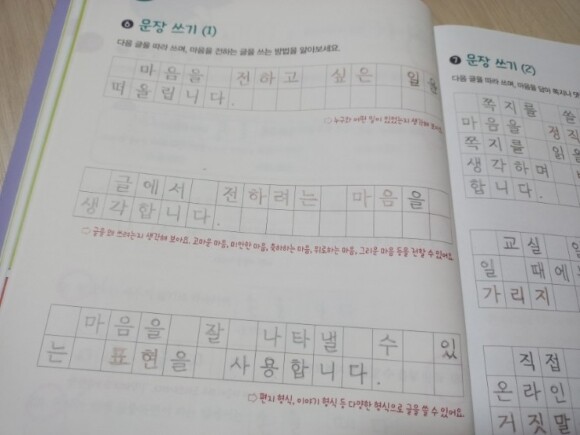 6 문장 쓰기 (1)
다음 글을 따라 쓰며, 마음을 전하는 글을 쓰는 방법을 알아보세요.
마음을 전하고 싶은 일을
떠올립니다.
누구와 어떤 일이 있었는지 생각해 봐요.
글에서 전하려는 마음을
생각합니다.
글을 왜 쓰려는지 생각해 보아요. 고마운 마음, 미안한 마음, 축하하는 마음, 위로하는 마음, 그리운 마음 등을 전할 수 있어요.
마음을 잘 나타낼 수 있
는 표현을 사용합니다.
편지 형식, 이야기 형식 등 다양한 형식으로 글을 쓸 수 있어요.
7 문장 쓰기 (2)
다음 글을 따라 쓰며, 마음을 담아 쪽지나
쪽지를 쓸
마음을 정직
쪽지를 읽을
생각하며
합니다.
교실
일 때에
가리지
직접
온라인
거짓말